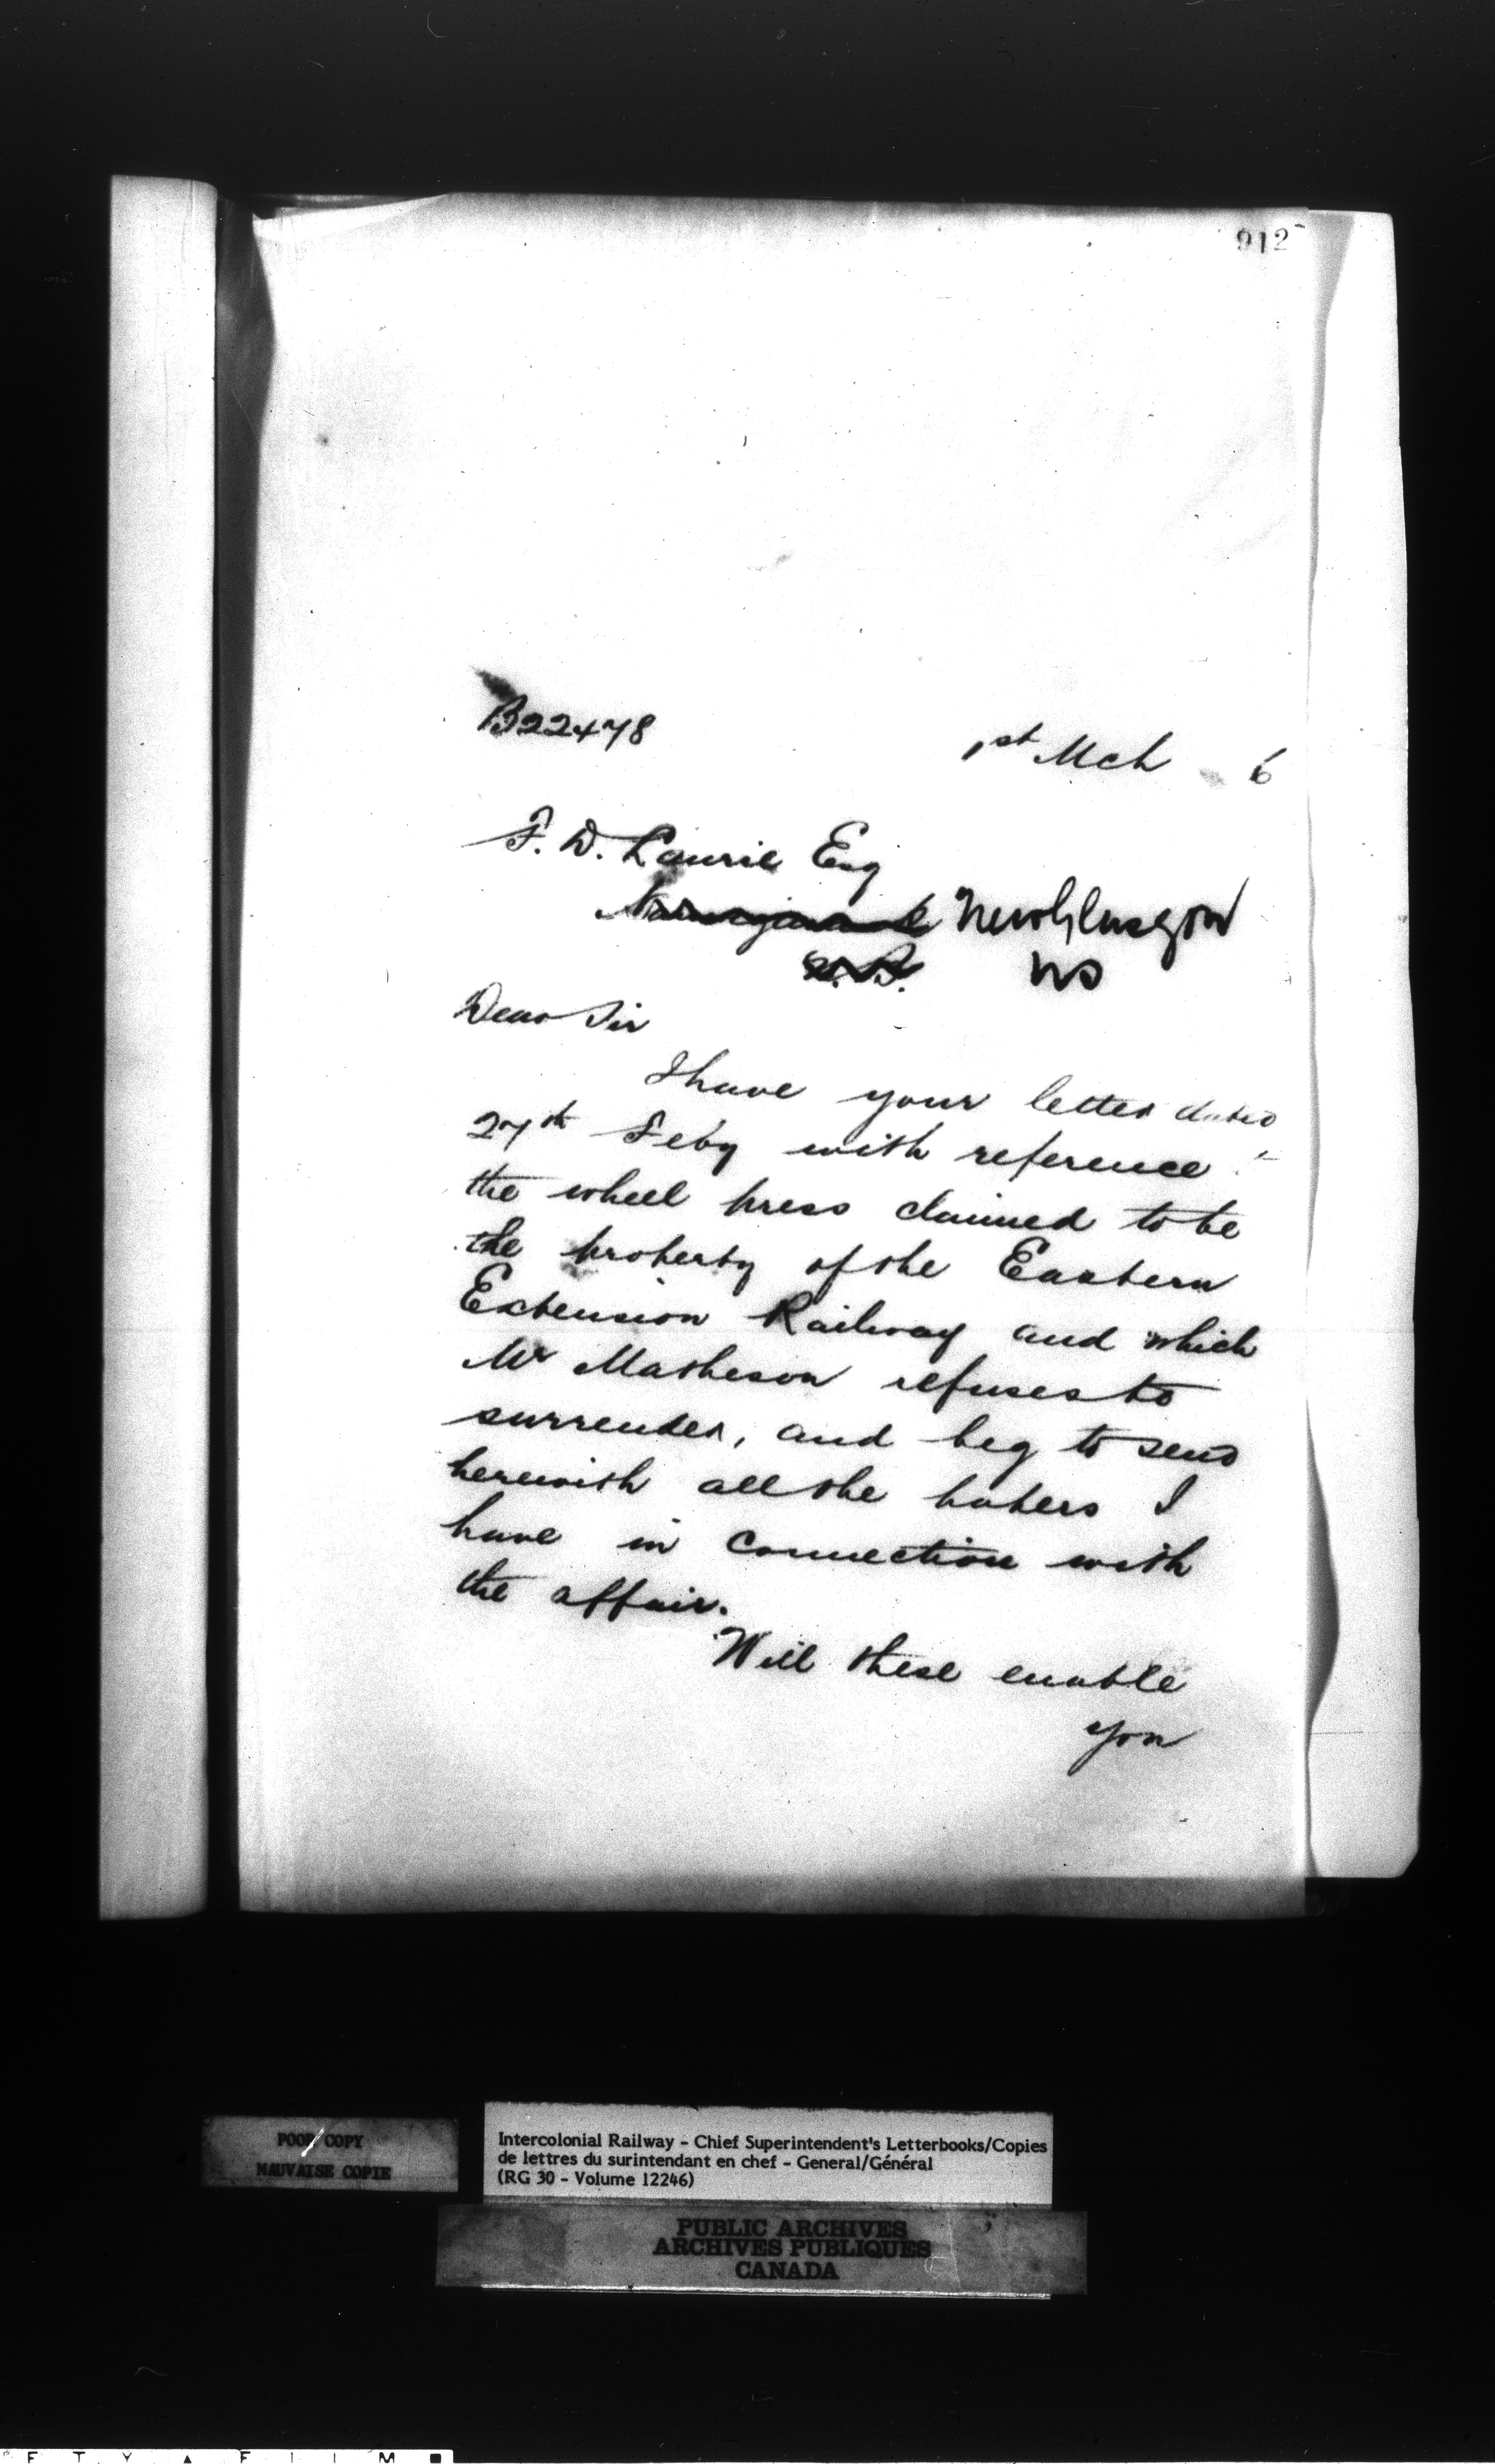 912
B22478
1st Mch 6
F. D. Laurie Esq
New Glasgow
NS
Dear Sir
I have your letter dated
27th Feby with reference to
the wheel press claimed to be
the property of the Eastern
Extension Railway and which
Mr Matheson refuses to
surrender, and beg to send
herewith all the papers I
have in connection with
the affair.
Will these enable
you
POOR COPY
MAUVAISE COPIE
Intercolonial Railway - Chief Superintendent's Letterbooks/Copies
de lettres du surintendant en chef - General/Général
(RG 30 - Volume 12246)
PUBLIC ARCHIVES
ARCHIVES PUBLIQUES
CANADA